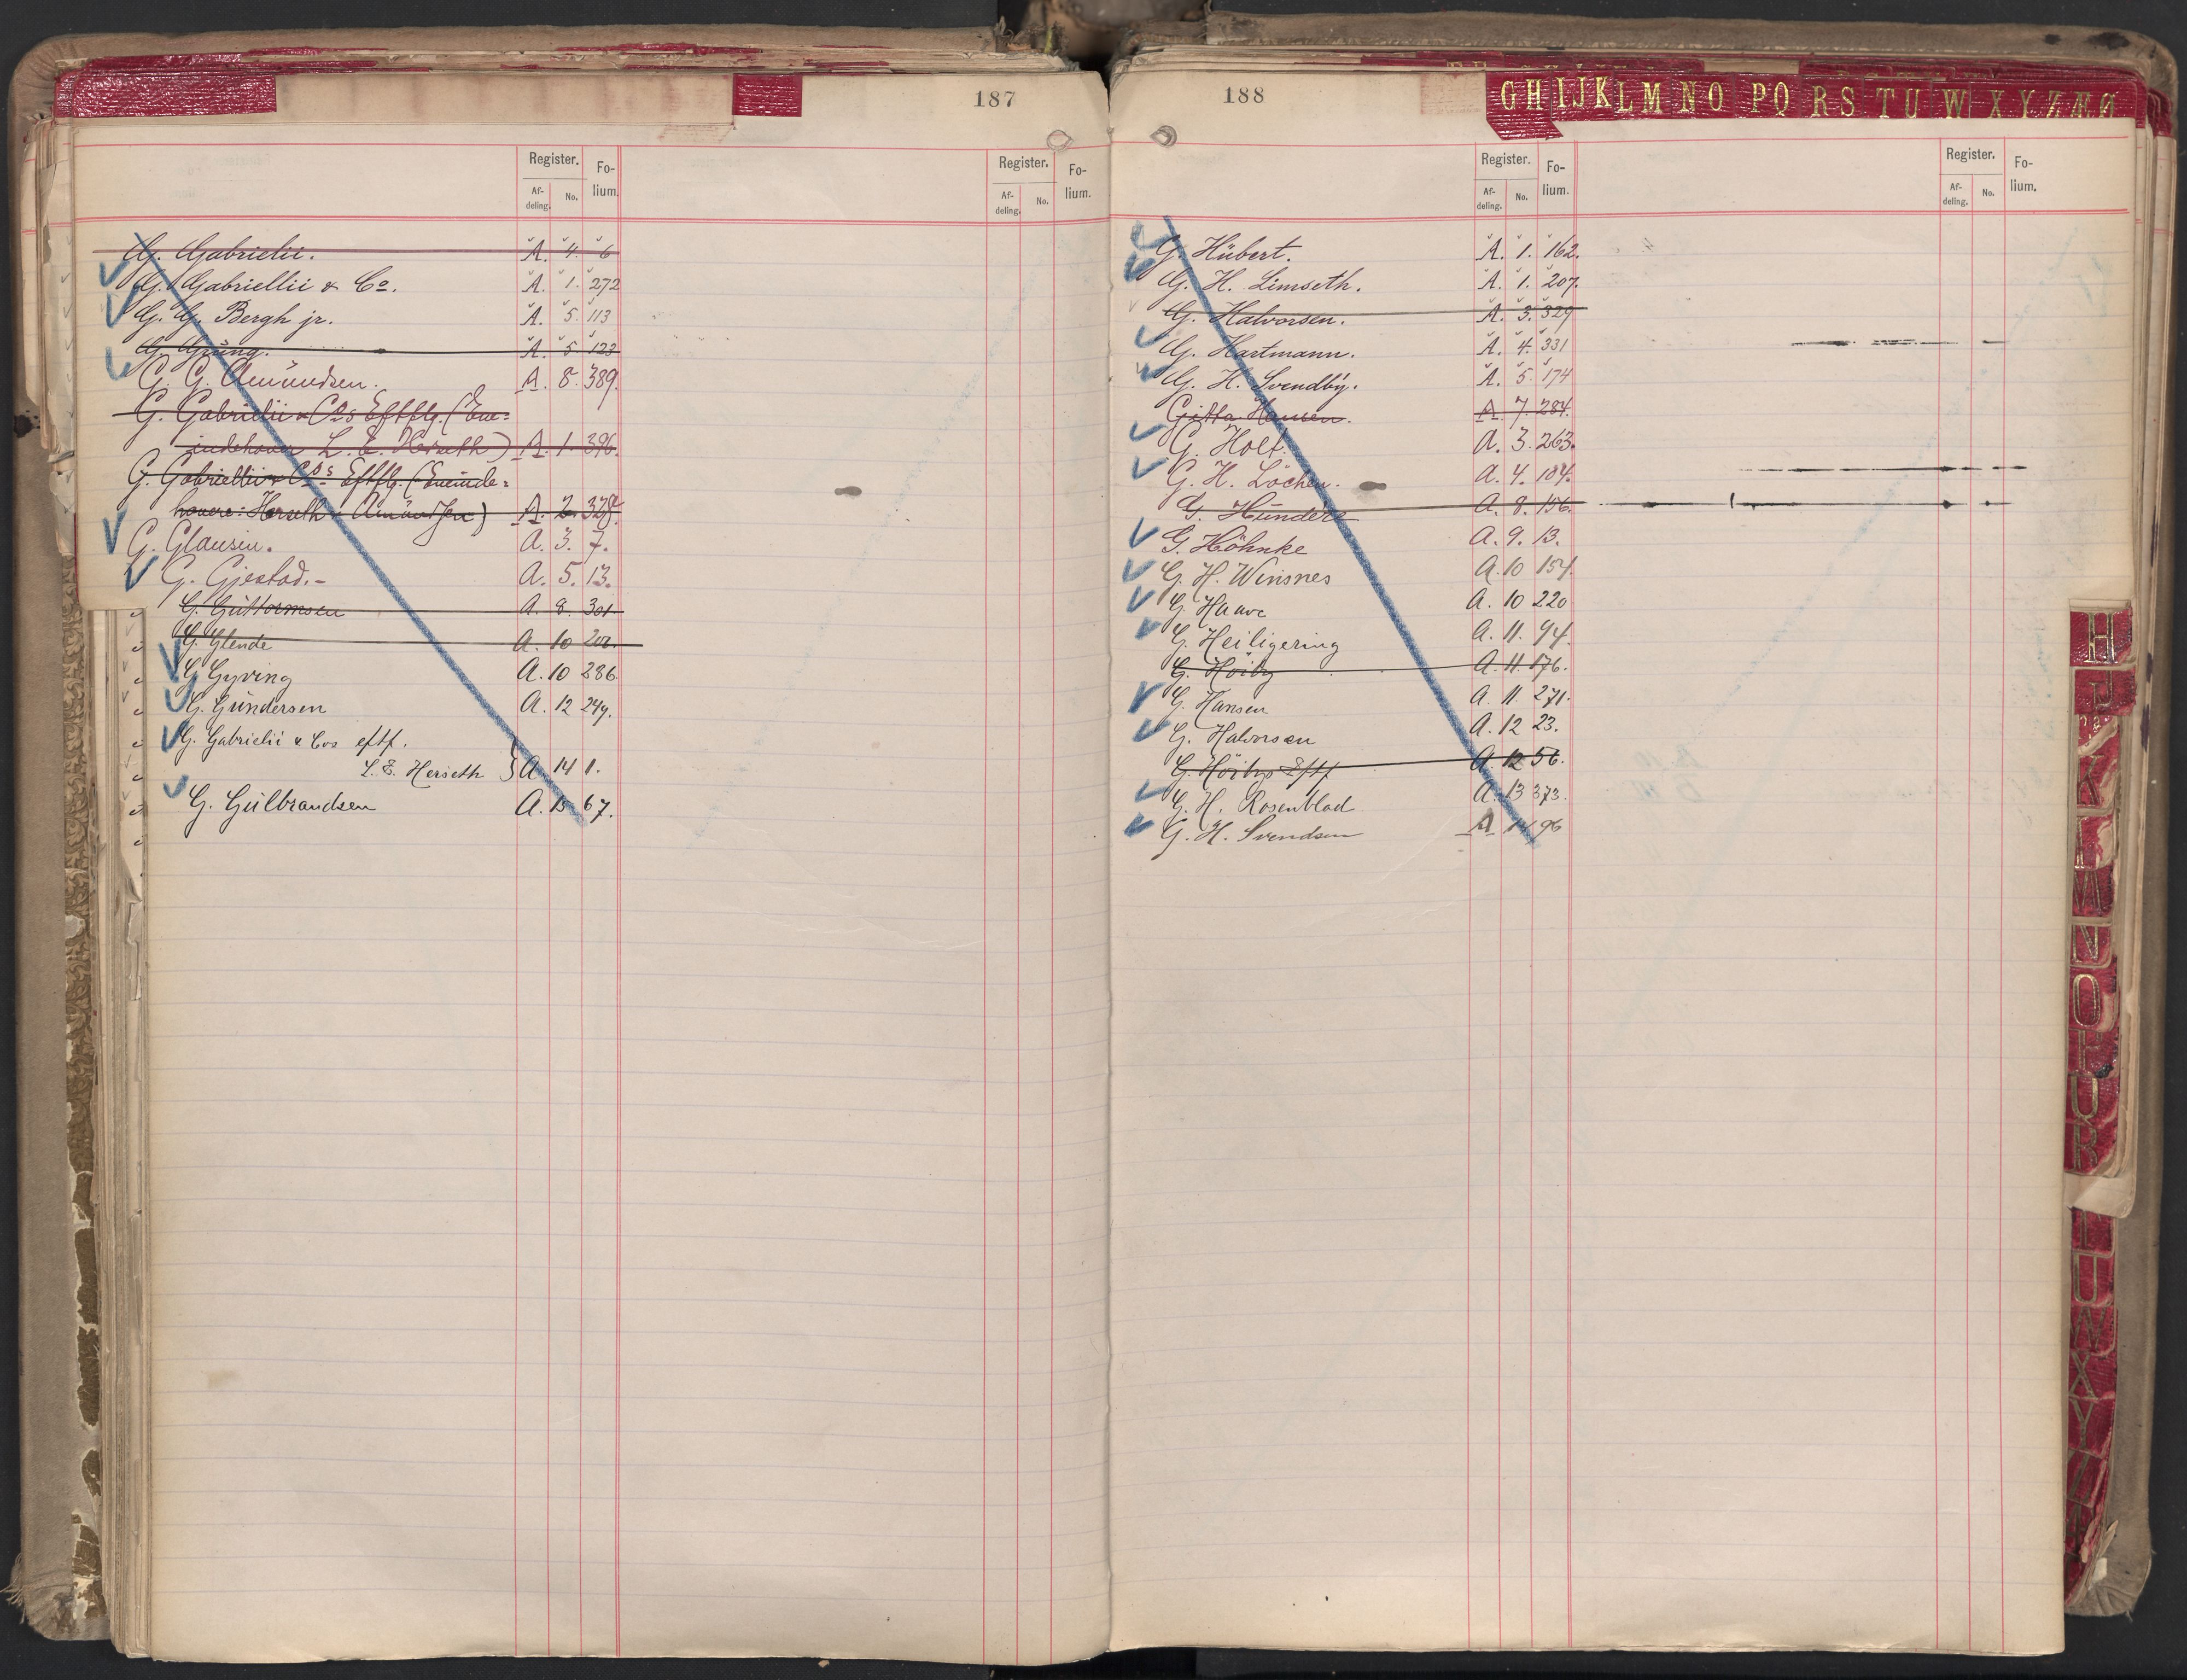 187
Register. Fo-
Af- No. lium.
deling.
Register. Fo-
Af- No. lium.
deling.
G. Gabrielii. A. 4. 6
G. Gabriellii & Co. A. 1. 272
G. G. Bergh jr. A. 5. 113
G. Grüng. A. 5 123
G. G. Amundsen. A. 8. 389.
G. Gabrielii & Cos Eftflg. (Ene-
indehaver L. E. Herseth) A. 1. 396.
G. Gabriellii & Cos Eftflg. (Eneinde-
havere: Herseth & Amundsen) A. 2. 328.
G. Glausen. A. 3. 7.
G. Gjestad.- A. 5. 13.
G. Guttormsen A. 8. 301.
G. Glende A. 10 200.
G Gyving A. 10 286.
G. Gundersen A. 12 249.
G. Gabrielii & Cos eftf.
L. E. Herseth } A. 14 1.
G. Gulbrandsen A. 15 67.
188
G H I J K L M N O P Q R S T U W X Y Z Æ Ø
Register. Fo-
Af- No. lium.
deling.
Register. Fo-
Af- No. lium.
deling.
G. Hübert. A. 1. 162.
G. H. Limseth. A. 1. 207.
G. Halvorsen. A. 3. 329
G. Hartmann. A. 4. 331
G. H. Svendby. A. 5. 174
Gitta Hansen. A. 7. 284.
G. Holt. A. 3. 263.
G. H. Löchen. A. 4. 104.
G. Hundere A. 8. 156.
G. Höhnke A. 9. 13.
G. H. Winsnes A. 10 154.
G. Haave A. 10 220
G. Heiligering A. 11. 94.
G. Höiby A. 11 176.
G. Hansen A. 11. 271.
G. Halvorsen A. 12 23.
G. Höibys Eftf A. 12 56.
G. H. Rosenblad A. 13 373.
G. H. Svendsen A 14 96